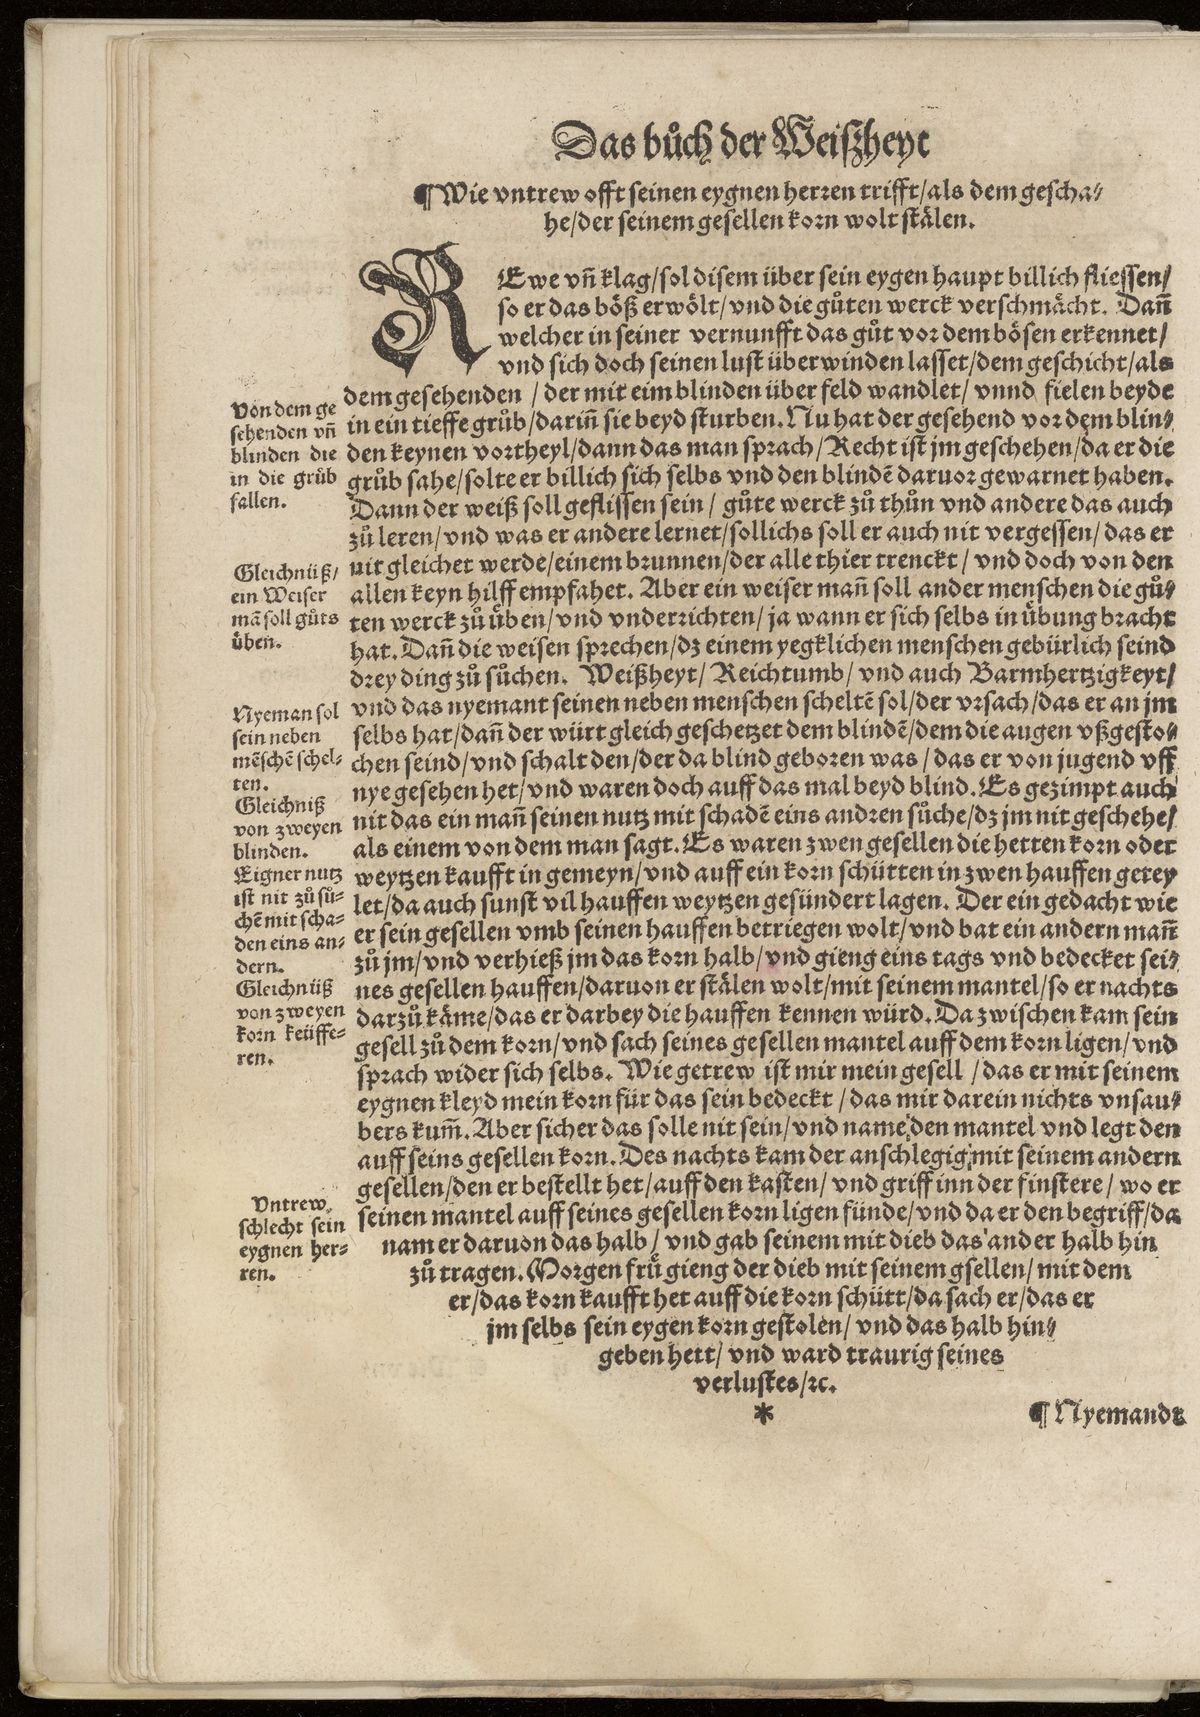 Das bůch der Weißheyt
¶Wie vntrew offt seinen eygnen herren trifft/als dem gescha⸗
he/der seinem gesellen korn wolt stälen.
REwe vñ klag/sol disem über sein eygen haupt billich fliessen/
so er das böß erwölt/vnd die gůten werck verschmächt. Dañ
welcher in seiner vernunfft das gůt vor dem bösen erkennet/
vnd sich doch seinen lust überwinden lasset/dem geschicht/als
dem gesehenden /der mit eim blinden über feld wandlet/ vnnd fielen beyde
in ein tieffe grůb/dariñ sie beyd sturben. Nu hat der gesehend vor dem blin⸗
den keynen vortheyl/dann das man sprach/Recht ist jm geschehen/da er die
grůb sahe/solte er billich sich selbs vnd den blindẽ daruor gewarnet haben.
Dann der weiß soll geflissen sein/ gůte werck zů thůn vnd andere das auch
zů leren/vnd was er andere lernet/sollichs soll er auch nit vergessen/das er
nit gleichet werde/einem brunnen/der alle thier trenckt/ vnd doch von den
allen keyn hilff empfahet. Aber ein weiser mañ soll ander menschen die gů⸗
ten werck zů üben/vnd vnderrichten/ ja wann er sich selbs in übung bracht
hat. Dañ die weisen sprechen/dz einem yegklichen menschen gebürlich seind
drey ding zů sůchen. Weißheyt/ Reichtumb/ vnd auch Barmhertzigkeyt/
vnd das nyemant seinen neben menschen scheltẽ sol/der vrsach/das er an jm
selbs hat/dañ der würt gleich geschetzet dem blindẽ/dem die augen vßgesto⸗
chen seind/vnd schalt den/der da blind geboren was/das er von jugend vff
nye gesehen het/vnd waren doch auff das mal beyd blind. Es gezimpt auch
nit das ein mañ seinen nutz mit schadẽ eins andren sůche/dz jm nit geschehe/
als einem von dem man sagt. Es waren zwen gesellen die hetten korn oder
weytzen kaufft in gemeyn/vnd auff ein korn schütten in zwen hauffen gerey
let/da auch sunst vil hauffen weytzen gesündert lagen. Der ein gedacht wie
er sein gesellen vmb seinen hauffen betriegen wolt/vnd bat ein andern mañ
zů jm/vnd verhieß jm das korn halb/vnd gieng eins tags vnd bedecket sei⸗
nes gesellen hauffen/daruon er stälen wolt/mit seinem mantel/so er nachts
darzů käme/das er darbey die hauffen kennen würd. Da zwischen kam sein
gesell zů dem korn/vnd sach seines gesellen mantel auff dem korn ligen/vnd
sprach wider sich selbs. Wie getrew ist mir mein gesell /das er mit seinem
eygnen kleyd mein korn für das sein bedeckt /das mir darein nichts vnsau⸗
bers kum̃. Aber sicher das solle nit sein/vnd name den mantel vnd legt den
auff seins gesellen korn. Des nachts kam der anschlegig mit seinem andern
gesellen/den er bestellt het/auff den kasten/ vnd griff inn der finstere/ wo er
seinen mantel auff seines gesellen korn ligen fünde/vnd da er den begriff/da
nam er daruon das halb/ vnd gab seinem mit dieb das ander halb hin
zů tragen. Morgen frů gieng der dieb mit seinem gsellen/ mit dem
er/das korn kaufft het auff die korn schütt/da sach er/das er
jm selbs sein eygen korn gestolen/ vnd das halb hin⸗
geben hett/ vnd ward traurig seines
verlustes/ꝛc.
*
¶Nyemandt
Von dem ge
sehenden vñ
blinden die
in die grůb
fallen.
Gleichnüß/
ein Weiser
mã soll gůts
üben.
Nyeman sol
sein neben
mẽschẽ schel⸗
ten.
Gleichniß
von zweyen
blinden.
Eigner nutz
ist nit zů sů⸗
chẽ mit scha⸗
den eins an⸗
dern.
Gleichnüß
von zweyen
korn keüffe⸗
ren.
Vntrew
schlecht sein
eygnen her⸗
ren.